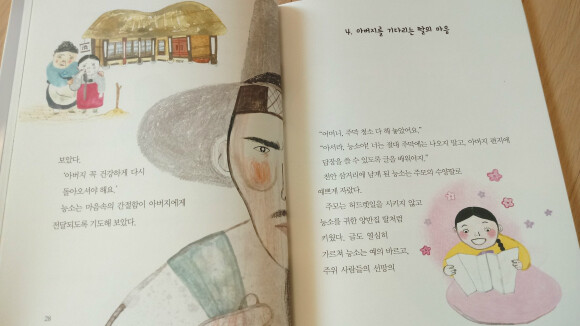 보았다.
'아버지 꼭 건강하게 다시
돌아오셔야 해요.'
능소는 마음속의 간절함이 아버지에게
전달되도록 기도해 보았다.
28
4. 아버지를 기다리는 딸의 마음
"어머니, 주막 청소 다 해 놓았어요."
"아서라, 능소야! 너는 절대 주막에는 나오지 말고, 아버지 편지에
답장을 쓸 수 있도록 글을 배워야지."
천안 삼거리에 남게 된 능소는 주모의 수양딸로
예쁘게 자랐다.
주모는 허드렛일을 시키지 않고
능소를 귀한 양반집 딸처럼
키웠다. 글도 열심히
가르쳐 능소는 예의 바르고,
주위 사람들의 선망의